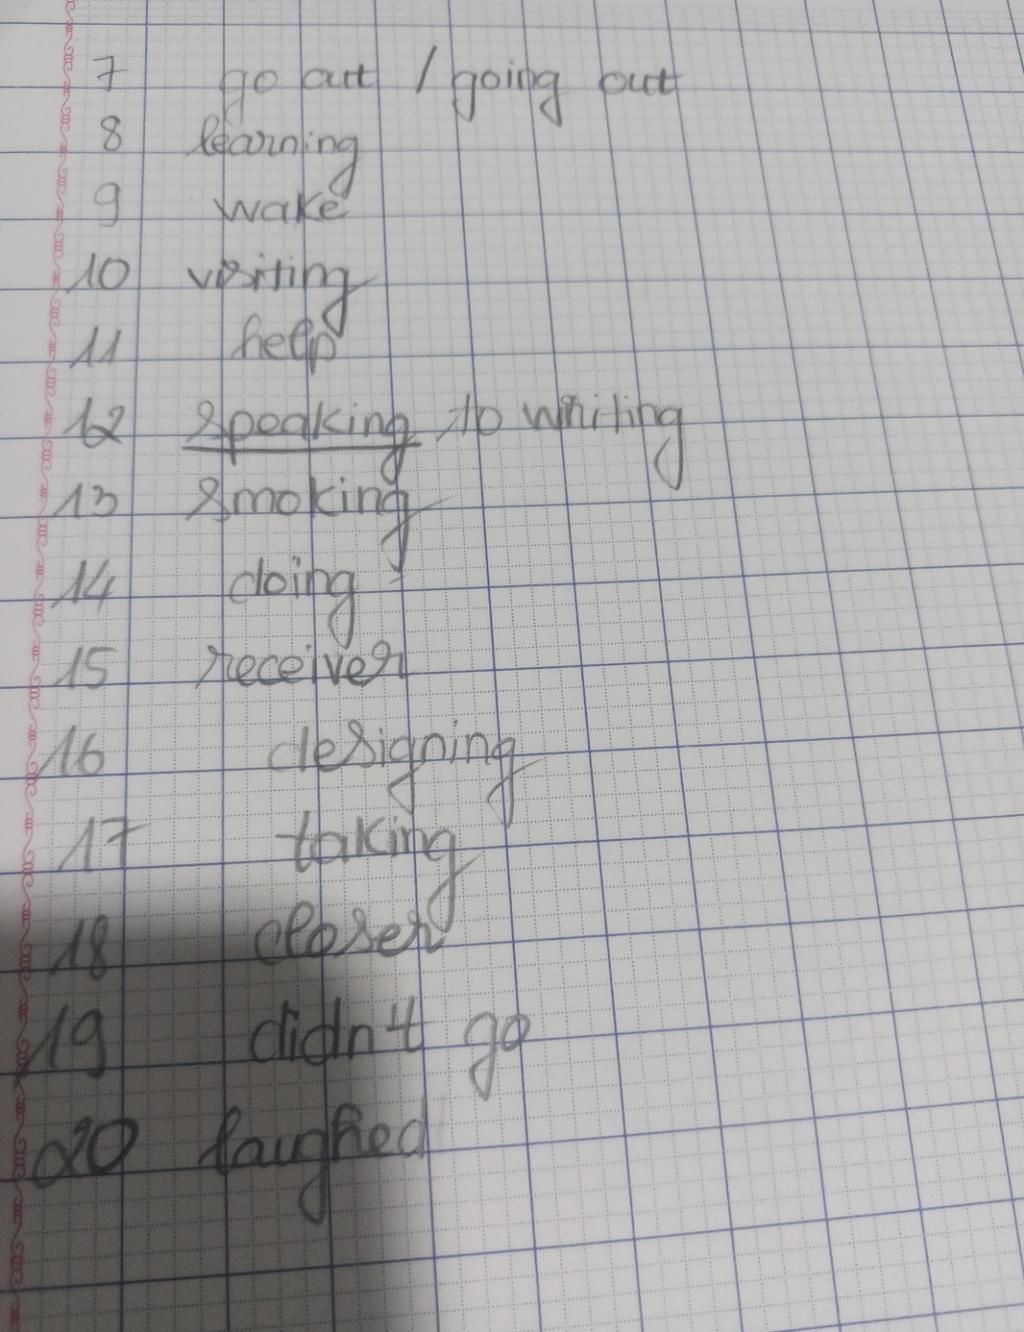 7 go out / going out
8 learning
9 wake
10 visiting
11 help
12 speaking to writing
13 smoking
14 doing
15 receiver
16 designing
17 taking
18 closer
19 didn't go
20 laughed